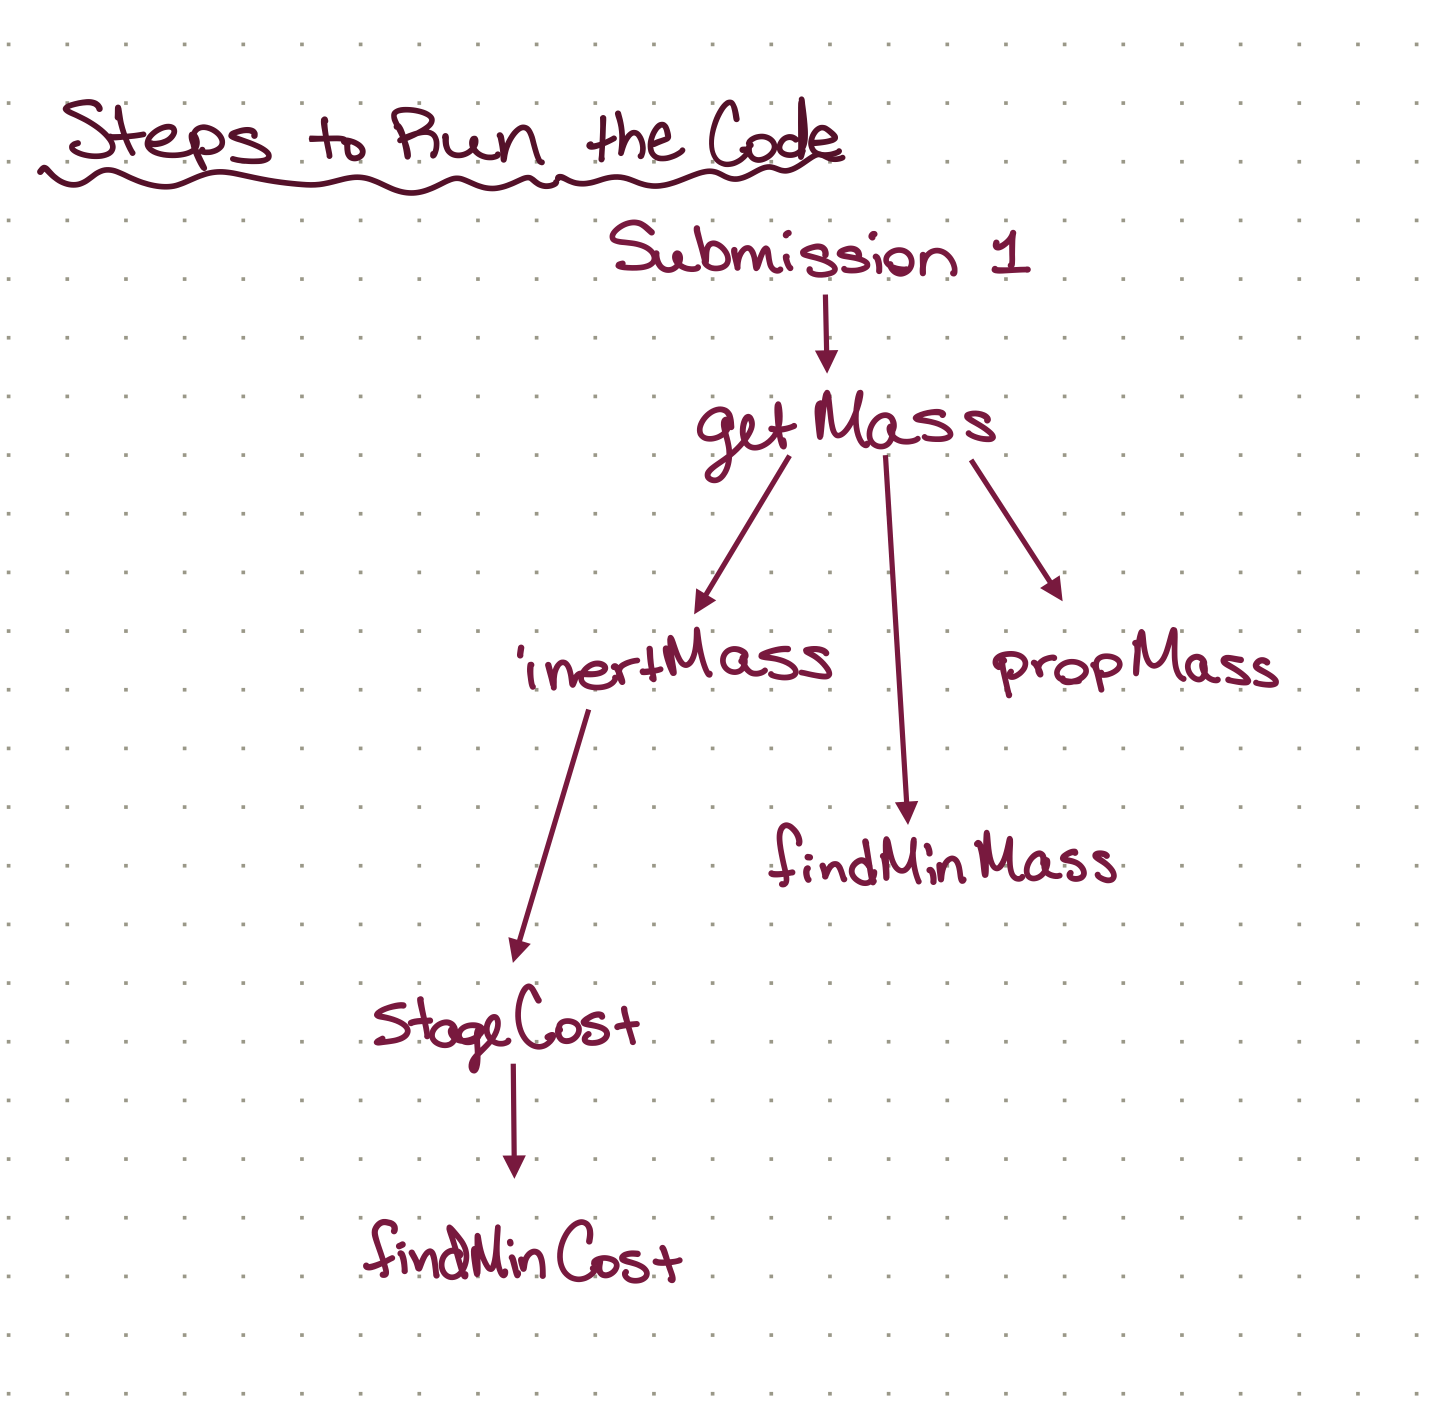 Steps to Run the Code
Submission 1
getMass
inertMass
propMass
findMinMass
stageCost
findMinCost